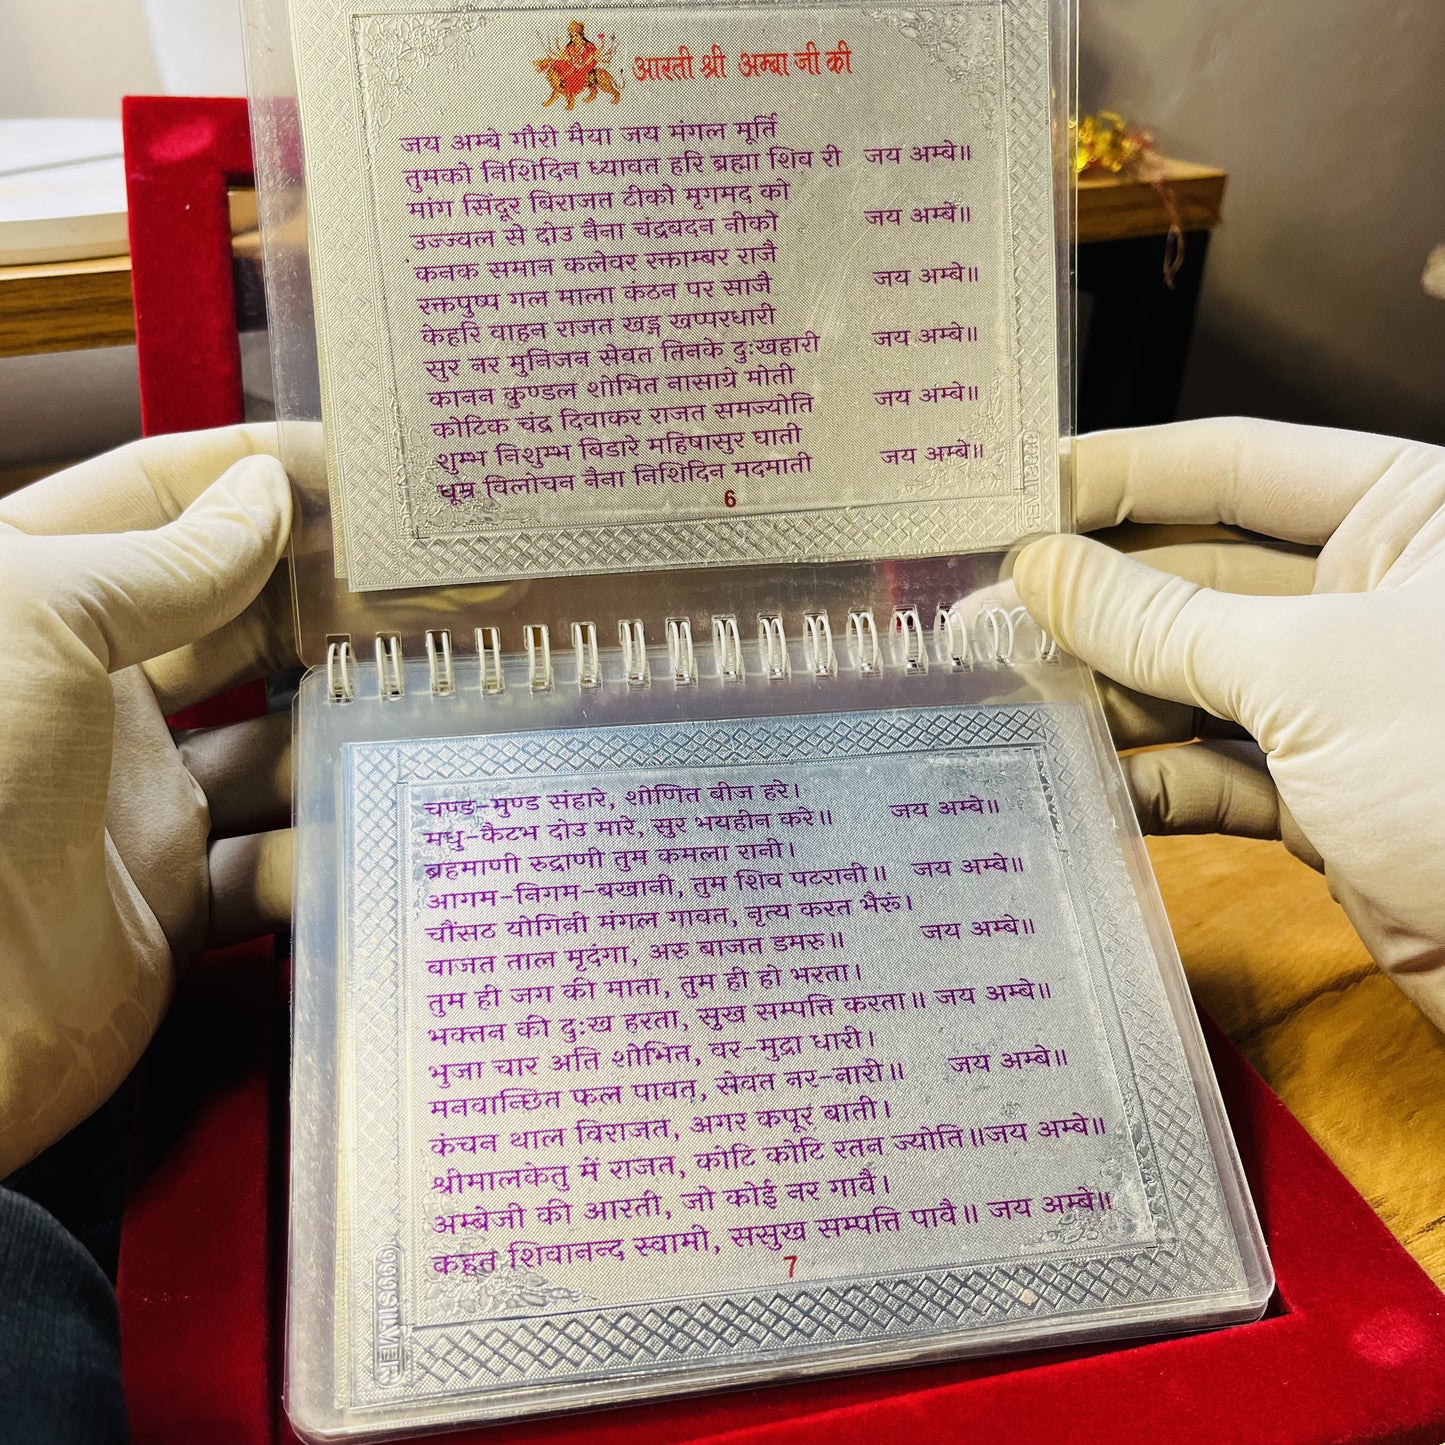 आरती श्री अम्बा जी की
जय अम्बे गौरी मैया जय मंगल मूर्ति
तुमको निशिदिन ध्यावत हरि ब्रह्मा शिव री जय अम्बे॥
मांग सिंदूर विराजत टीको मृगमद को
उज्ज्वल से दोउ नैना चंद्रबदन नीको जय अम्बे॥
कनक समान कलेवर रक्ताम्बर राजै
रक्तपुष्प गल माला कंठन पर साजै जय अम्बे॥
केहरि वाहन राजत खड्ग खप्परधारी
सुर नर मुनिजन सेवत तिनके दुःखहारी जय अम्बे॥
कानन कुण्डल शोभित नासाग्रे मोती
कोटिक चंद्र दिवाकर राजत समज्योति जय अंम्बे॥
शुम्भ निशुम्भ बिडारे महिषासुर घाती
धूम्र विलोचन नैना निशिदिन मदमाती जय अम्बे॥
6
999SILVER
चण्ड-मुण्ड संहारे, शोणित बीज हरे।
मधु-कैटभ दोउ मारे, सुर भयहीन करे॥ जय अम्बे॥
ब्रहमाणी रुद्राणी तुम कमला रानी।
आगम-निगम-बखानी, तुम शिव पटरानी॥ जय अम्बे॥
चौंसठ योगिनी मंगल गावत, नृत्य करत भैरूं।
बाजत ताल मृदंगा, अरु बाजत डमरु॥ जय अम्बे॥
तुम ही जग की माता, तुम ही हो भरता।
भक्तन की दुःख हरता, सुख सम्पत्ति करता॥ जय अम्बे॥
भुजा चार अति शोभित, वर-मुद्रा धारी।
मनवान्छित फल पावत, सेवत नर-नारी॥ जय अम्बे॥
कंचन थाल विराजत, अगर कपूर बाती।
श्रीमालकेतु में राजत, कोटि कोटि रतन ज्योति॥जय अम्बे॥
अम्बेजी की आरती, जो कोई नर गावै।
कहत शिवानन्द स्वामी, ससुख सम्पत्ति पावै॥ जय अम्बे॥
7
999SILVER